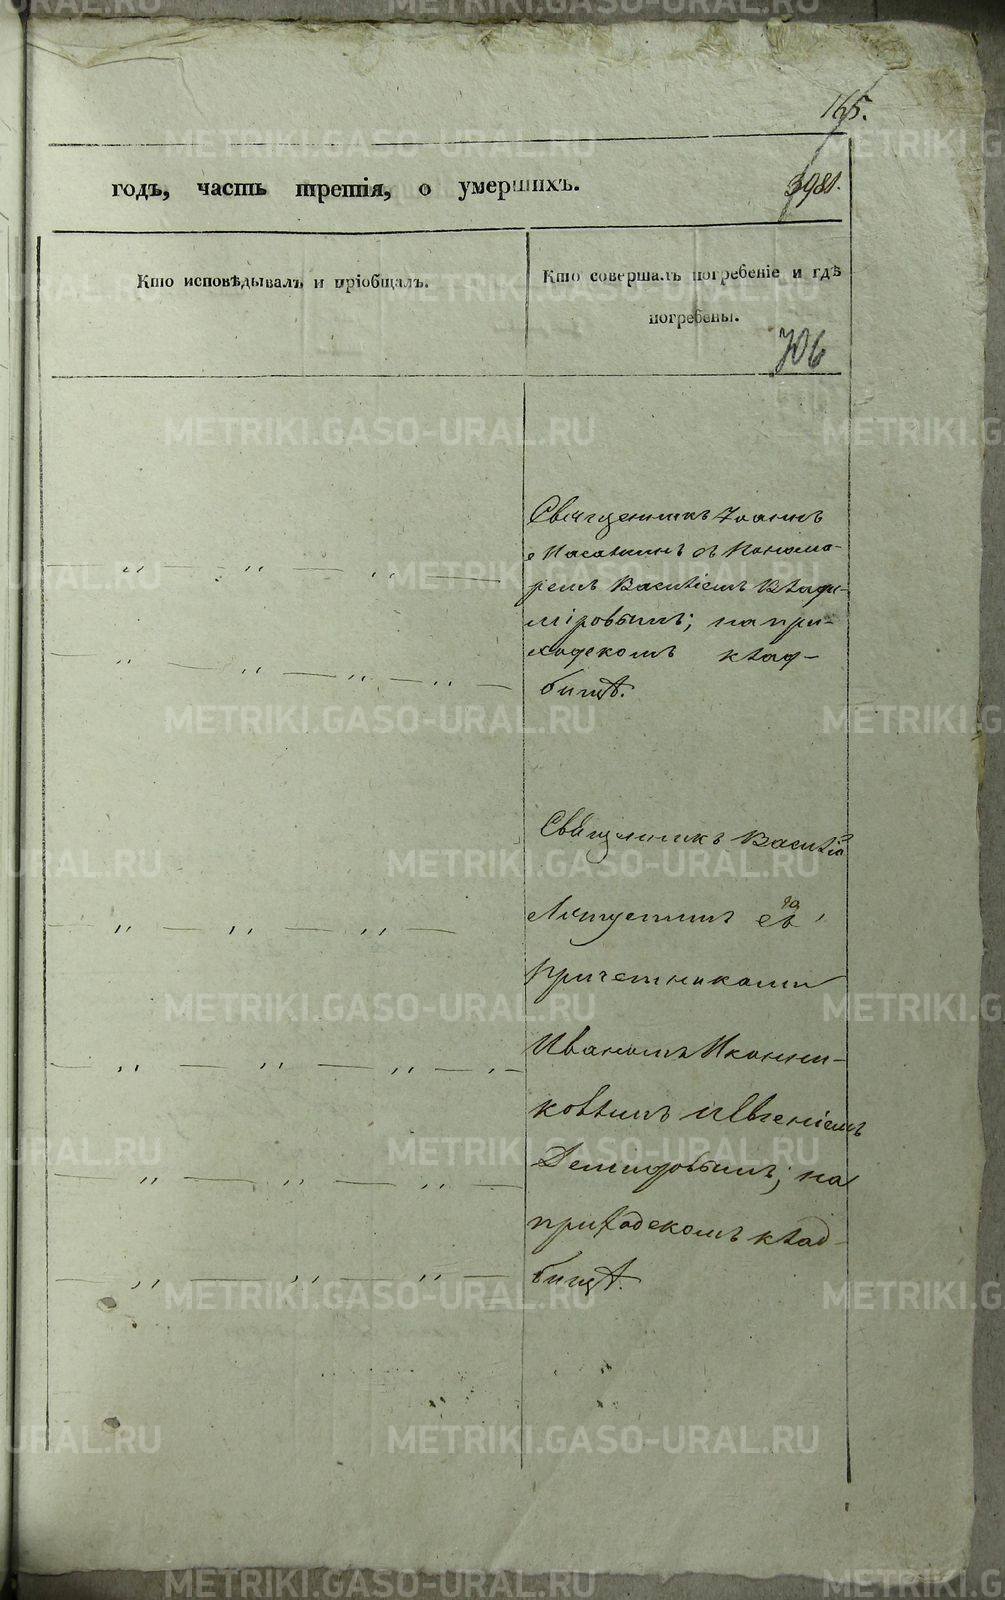 165.
годъ, часть третія, о умершихъ.
398.
Кто исповѣдывалъ и пріобщалъ.
Кто совершалъ погребеніе и гдѣ
погребены.
706
Священникъ Іоаннъ
съ Понома-
ремъ Василіемъ Влади-
міровымъ; на при-
ходскомъ клад-
бищѣ.
Священникъ Василій
съ
причетниками
Иваномъ Иконни-
ковымъ и Евгеніемъ
Демидовымъ; на
приходскомъ клад-
бищѣ.
METRIKI.GASO-URAL.RU